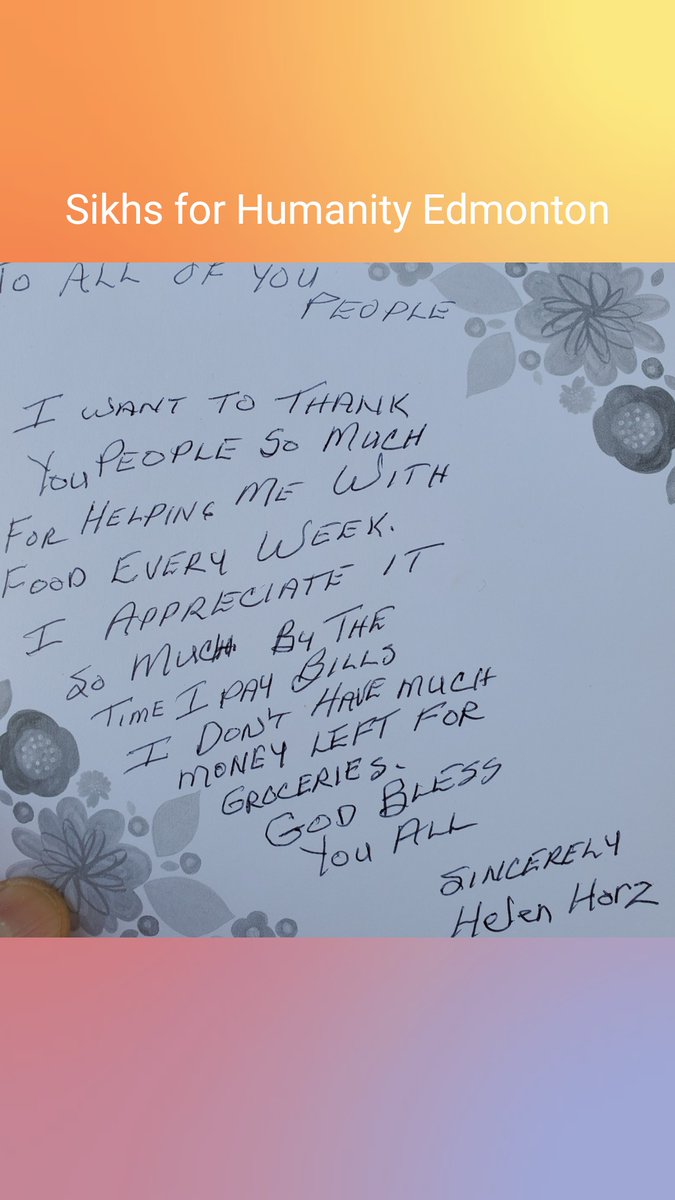 Sikhs for Humanity Edmonton
TO ALL OF YOU
PEOPLE
I WANT TO THANK
YOU PEOPLE SO MUCH
FOR HELPING ME WITH
FOOD EVERY WEEK.
I APPRECIATE IT
SO MUCH. BY THE
TIME I PAY BILLS
I DON'T HAVE MUCH
MONEY LEFT FOR
GROCERIES.
GOD BLESS
YOU ALL
SINCERELY
Helen Harz